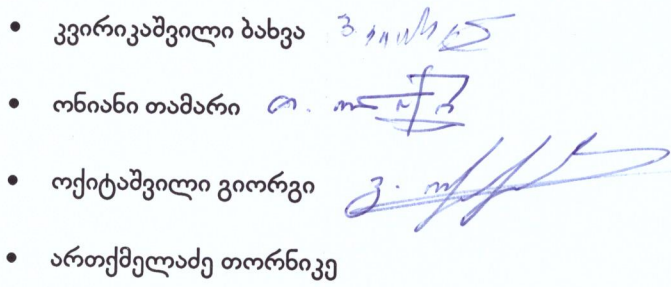 • კვირიკაშვილი ბახვა
• ონიანი თამარი
• ოქიტაშვილი გიორგი
• ართქმელაძე თორნიკე